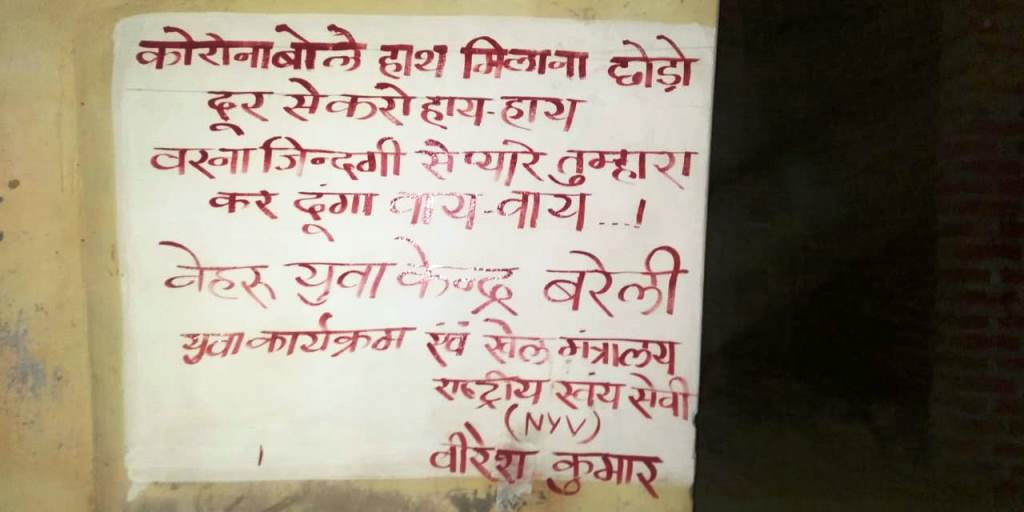 कोरोना बोले हाथ मिलाना छोड़ो
दूर से करो हाय-हाय
वरना जिन्दगी से प्यारे तुम्हारा
कर दूंगा वाय-वाय...!
नेहरू युवा केन्द्र बरेली
युवा कार्यक्रम एंव खेल मंत्रालय
राष्ट्रीय स्वंय सेवी
(NYV)
वीरेश कुमार